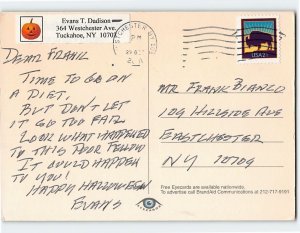 Evans T. Dadison
364 Westchester Ave.
Tuckahoe, NY 10707
PM
USA21
DEAR FRANK
TIME TO GO ON
A DIET,
BUT DON'T LET
IT GO TOO FAR.
LOOK WHAT HAPPENED
TO THIS POOR FELLOW
IT COULD HAPPEN
TO YOU!
HAPPY HALLOWEEN
EVANS
MR FRANK BIANCO
109 HILLSIDE AVE
EASTCHESTER
NY 10709
Free Eyecards are available nationwide.
To advertise call BrandAid Communications at 212-717-9191